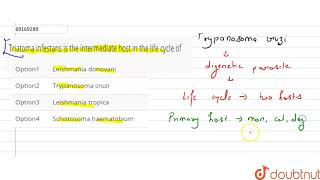 69169280
Triatoma infestans is the intermediate host in the life cycle of
Option1 Leishmania donovani
Option2 Trypanosoma cruzi
Option3 Leishmania tropica
Option4 Schistosoma haematobium
Trypanosoma cruzi
digenetic parasite
Life cycle → two hosts
Primary host → man, cat, dog
doubtnut